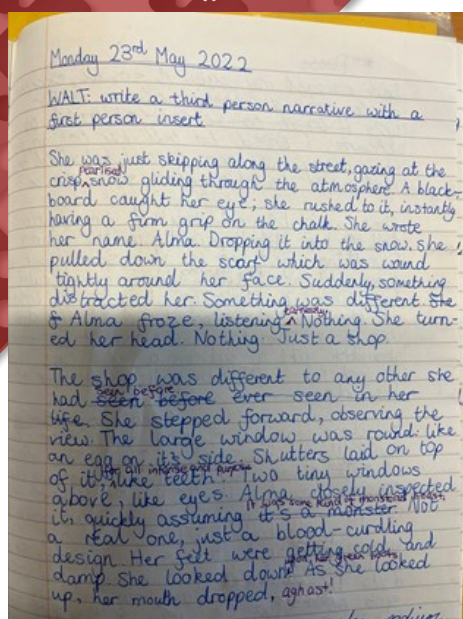 Monday 23rd May 2022
WALT: write a third person narrative with a
first person insert
She was just skipping along the street, gazing at the
pearlised
crisp, snow gliding through the atmosphere. A black-
board caught her eye; she rushed to it, instantly
having a firm grip on the chalk. She wrote
her name. Alma. Dropping it into the snow. She
pulled down the scarf which was wound
tightly around her face. Suddenly, something
distracted her. Something was different. She
Alma froze, listening Nothing. She turn-
ed her head. Nothing. Just a shop.
The shop was different to any other she
seen before
had seen before ever seen in her
life. She stepped forward, observing the
view. The large window was round: like
an egg on it's side. Shutters laid on top
for all intense and purpose
of it, like teeth. Two tiny windows
above, like eyes. Alma closely inspected
it was some kind of monstrous beast,
it, quickly assuming it's a monster. Not
a real one, just a blood-curdling
design. Her feet were getting cold and
damp. She looked down. As she looked
up, her mouth dropped, aghast!